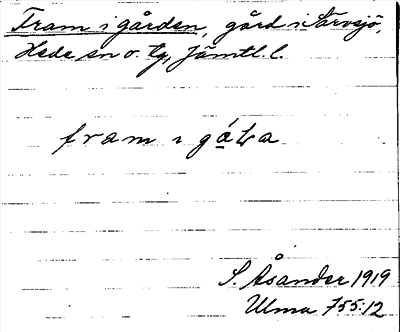 Fram i gården, gård i Särvsjö,
Hede sn o. tg, Jämtl. l.
fram i gáLa
S. Åsander 1919
Ulma 755:12